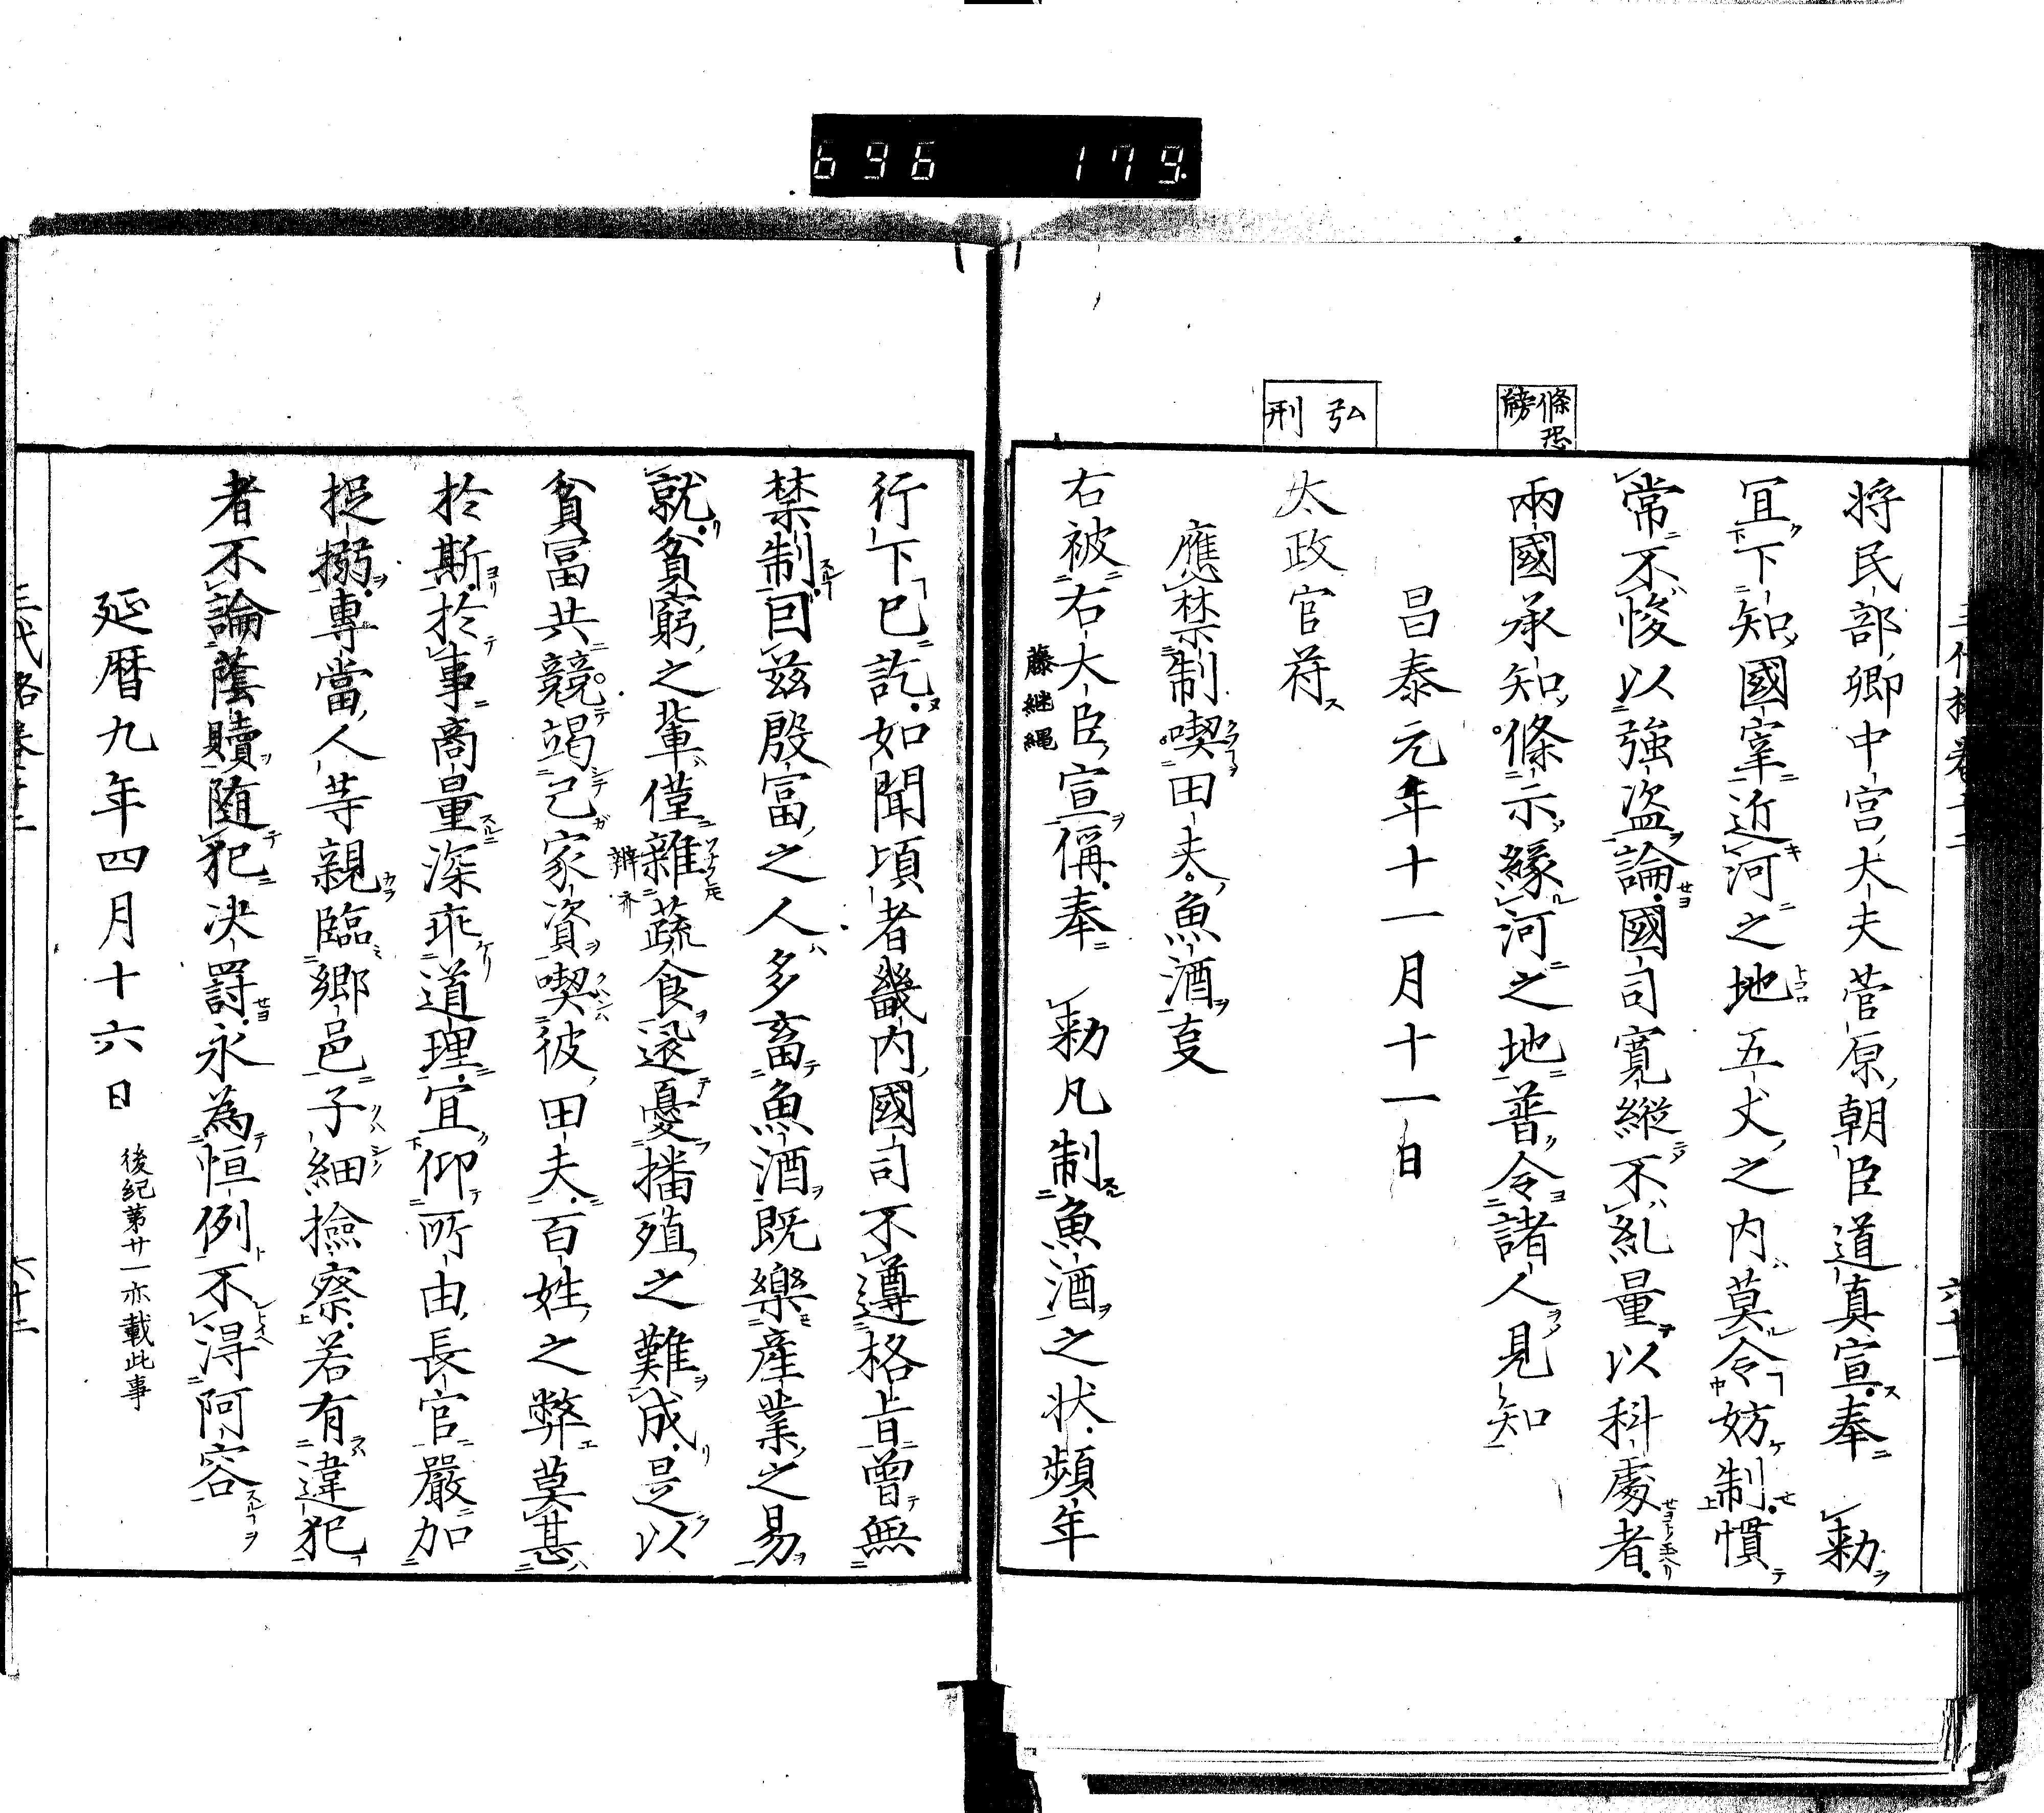 696 179
條恐
牓
弘
刑
将民部卿中宮大夫菅原朝臣道真宣奉 勅
宜下知國宰近河之地五丈之内莫令妨制慣
常不悛以強盗論國司寛縦不糺量以科處者
兩國承知條示縁河之地普令諸人見知
昌泰元年十一月十一日
太政官符
應禁制喫田夫魚酒事
右被右大臣宣偁奉 勅凡制魚酒之状頻年
藤継縄
行下已訖如聞頃者畿内國司不遵格旨曽無
禁制因茲殷富之人多畜魚酒既樂産業之易
就貧窮之輩僅雜蔬食還憂播殖之難成是以
辨亦
貧冨共競竭己家資喫彼田夫百姓之弊莫甚
於斯於事商量深乖道理宜仰所由長官嚴加
捉搦專當人等親臨郷邑子細撿察若有違犯
者不論蔭贖随犯决罸永為恒例不得阿容
延暦九年四月十六日 後紀第廿一亦載此事